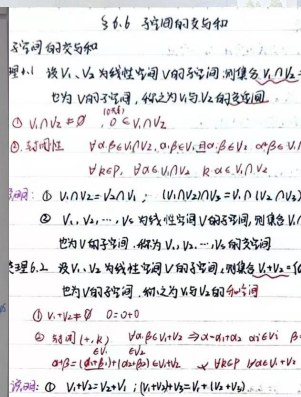 §6.6 子空间的交与和
子空间的交与和
理6.1 设V₁、V₂为线性空间V的子空间,则集合V₁∩V₂=
也为V的子空间,称之为V₁与V₂的交空间
① V₁∩V₂≠∅ 0∈V₁∩V₂
② 封闭性 ∀α,β∈V₁∩V₂, α,β∈V₁且α,β∈V₂ α+β∈V₁
∀k∈P, ∀α∈V₁∩V₂ k·α∈V₁∩V₂
说明: ① V₁∩V₂=V₂∩V₁ ; (V₁∩V₂)∩V₃=V₁∩(V₂∩V₃)
② V₁、V₂、…、Vₛ为线性空间V的子空间,则集合V₁∩
也为V的子空间,称为V₁、V₂、…、Vₛ的交空间
定理6.2 设V₁、V₂为线性空间V的子空间,则集合V₁+V₂={
也为V的子空间,称之为V₁与V₂的和空间
① V₁+V₂≠∅ 0=0+0
② 封闭(+,k) ∀α,β∈V₁+V₂ ⇒α=α₁+α₂ αi∈Vi β=
∈V₁ ∈V₂
α+β=(α₁+β₁)+(α₂+β₂)∈V₁+V₂ ∀k∈P ∀α∈V₁+V₂
说明: ① V₁+V₂=V₂+V₁ ; (V₁+V₂)+V₃=V₁+(V₂+V₃)